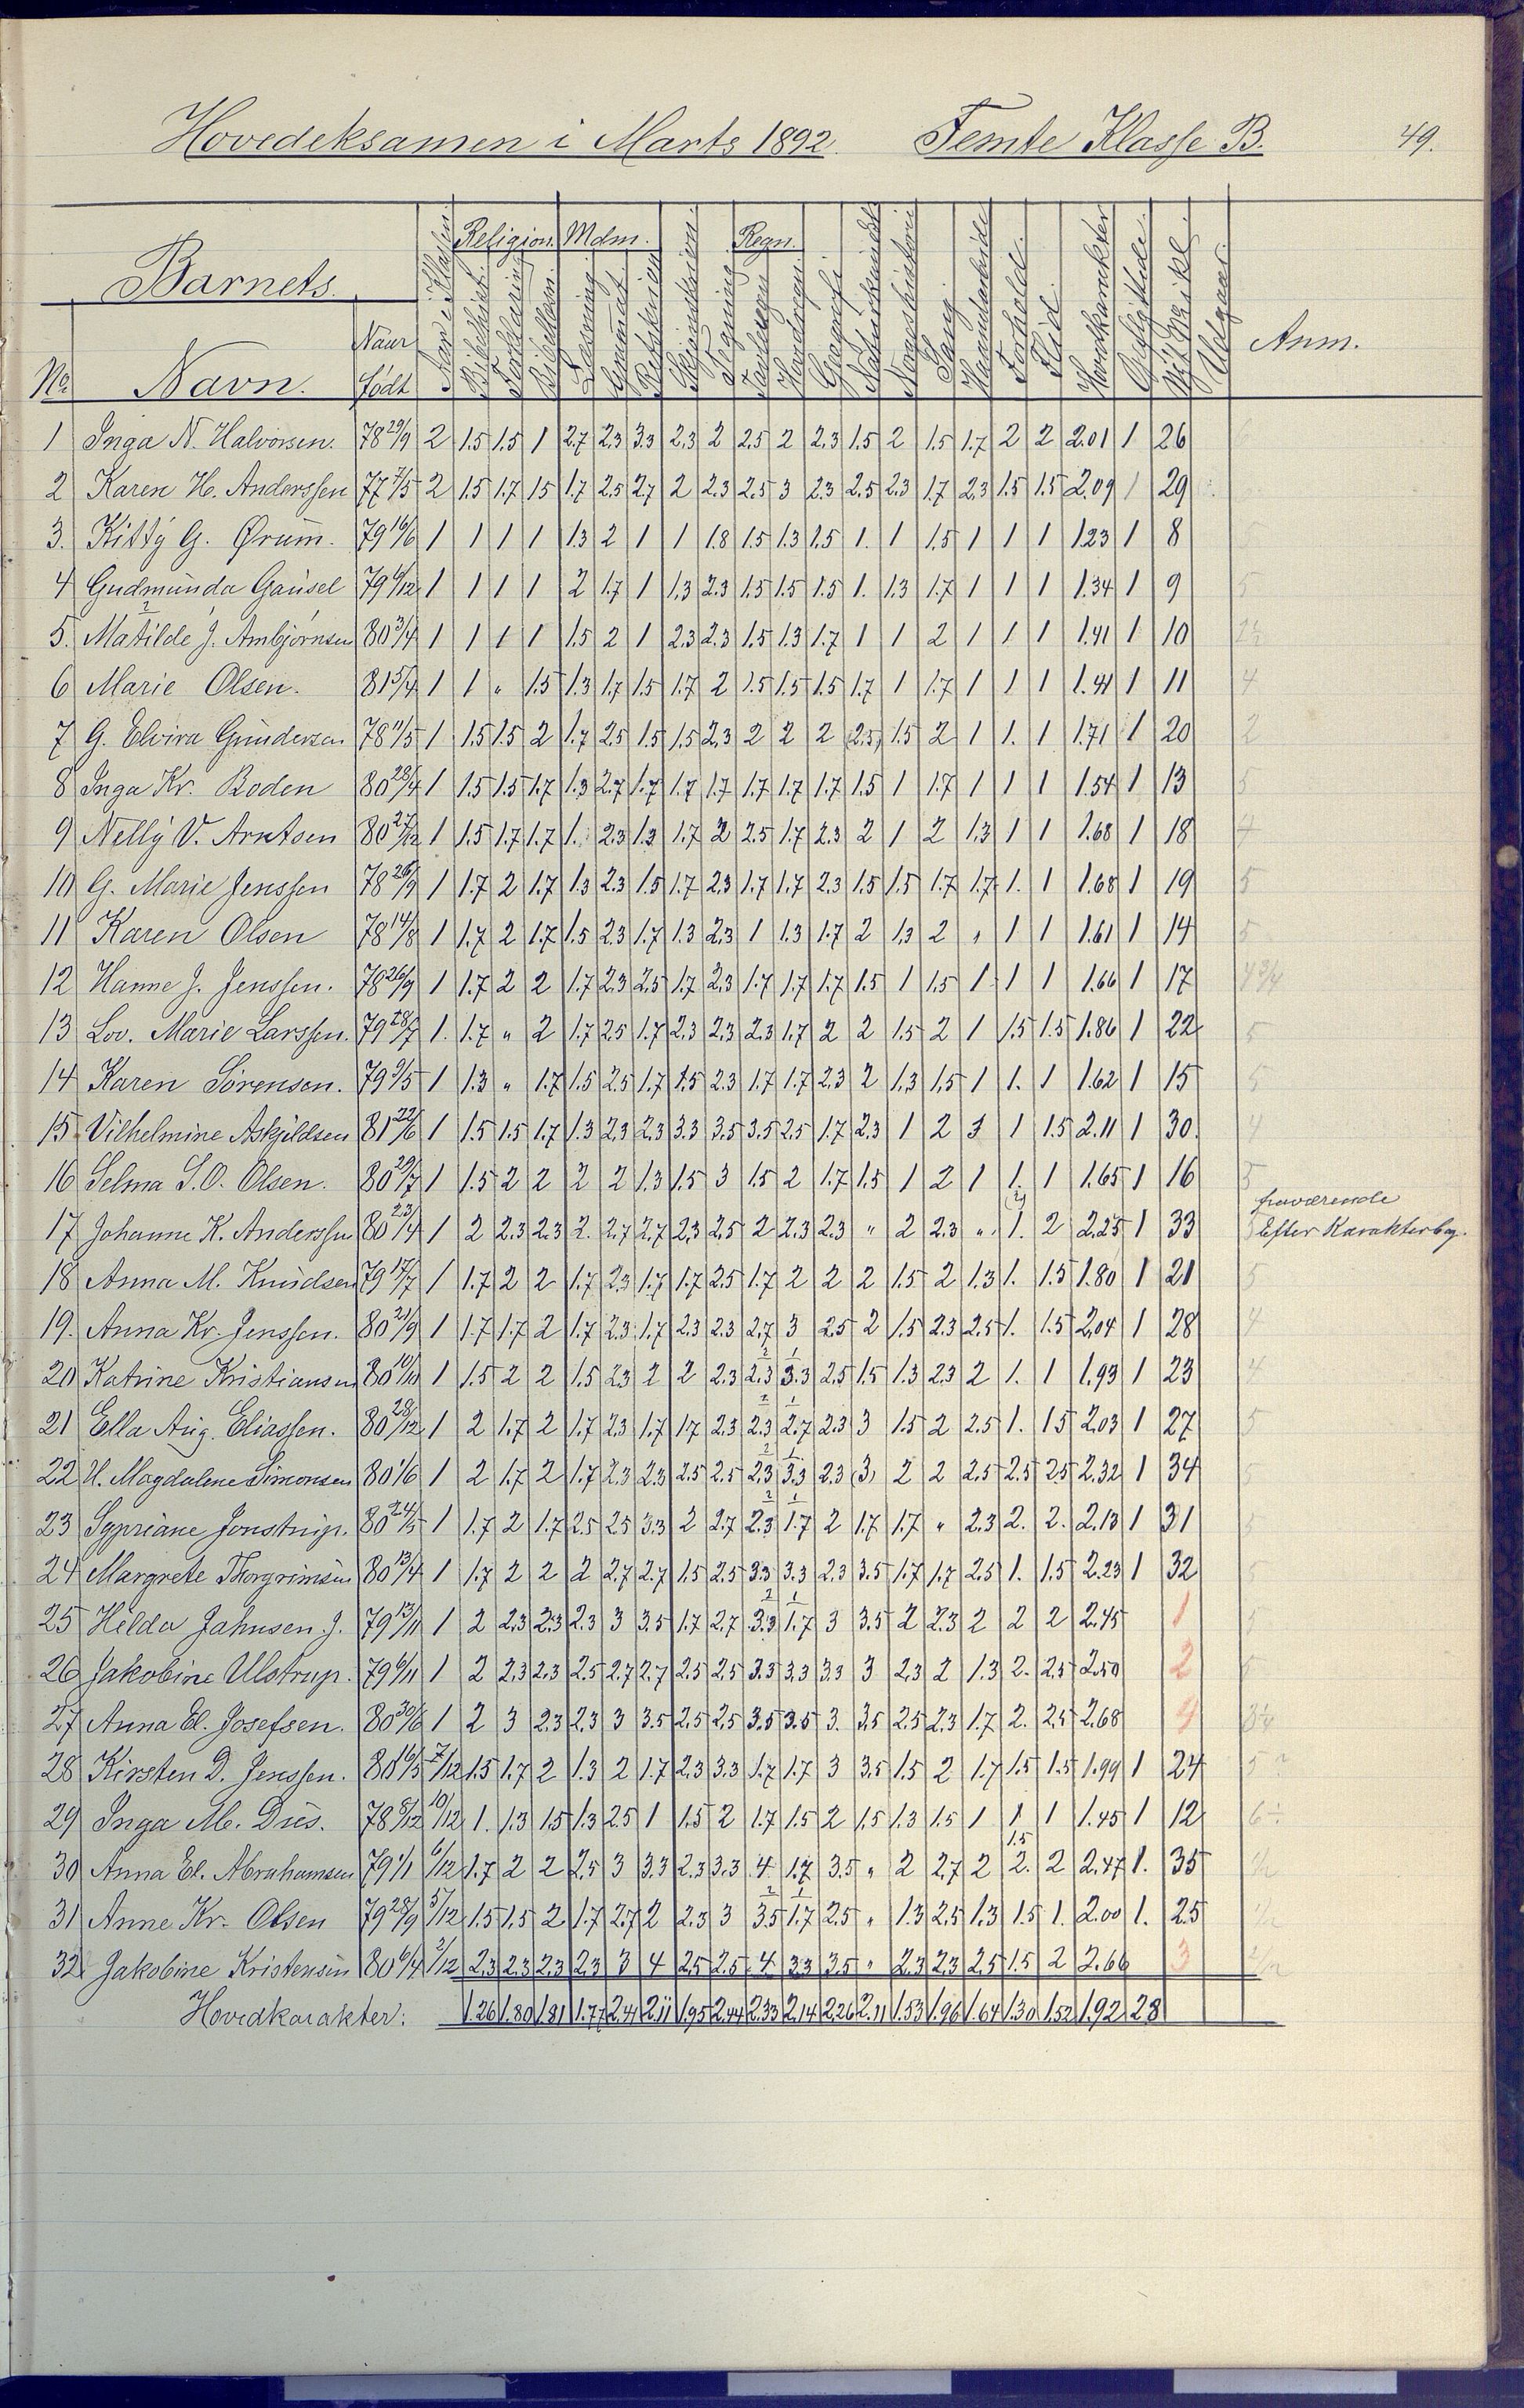 Hovedeksamen i Marts 1892. Femte Klasse B. 49.
Barnets
Religion. Mdm. Regn.
No Navn. Naar født Aar i Klassen Bibelhist. Forklaring Læsning Tegning Geografi Sang Haandarbeide Forhold Flid Hovedkarakter Anm.
1 Inga N. Halvorsen. 78 29/9 2 1.5 1.5 1 2.7 2.3 3.3 2.3 2 2.5 2 2.3 1.5 2 1.5 1.7 2 2 2.01 1 26
2 Karen H. Anderssen 77 7/5 2 1.5 1.7 1.5 1.7 2.5 2.7 2 2.3 2.5 3 2.3 2.5 2.3 1.7 2.3 1.5 1.5 2.09 1 29
3. Kitty G. Ørum. 79 16/6 1 1 1 1 1.3 2 1 1 1.8 1.5 1.3 1.5 1. 1 1.5 1 1 1 1.23 1 8
4 Gudmunda Gausel 79 6/12 1 1 1 1 2 1.7 1 1.3 2.3 1.5 1.5 1.5 1. 1.3 1.7 1 1 1 1.34 1 9
5. Matilde J. Ambjørnsen 80 3/4 1 1 1 1 1.5 2 1 2.3 2.3 1.5 1.3 1.7 1 1 2 1 1 1 1.41 1 10
6 Marie Olsen. 81 5/4 1 1 " 1.5 1.3 1.7 1.5 1.7 2 1.5 1.5 1.5 1.7 1 1.7 1 1 1 1.41 1 11 4
7 G. Elvira Gundersen 78 11/5 1 1.5 1.5 2 1.7 2.5 1.5 1.5 2.3 2 2 2 (2.5) 1.5 2 1 1. 1 1.71 1 20 2
8 Inga Kr. Boden 80 28/4 1 1.5 1.5 1.7 1.3 2.7 1.7 1.7 1.7 1.7 1.7 1.7 1.5 1 1.7 1 1 1 1.54 1 13 5
9 Nelly V. Arntsen 80 27/12 1 1.5 1.7 1.7 1. 2.3 1.3 1.7 2 2.5 1.7 2.3 2 1 2 1.3 1 1 1.68 1 18
10 G. Marie Jenssen 78 26/9 1 1.7 2 1.7 1.3 2.3 1.5 1.7 2.3 1.7 1.7 2.3 1.5 1.5 1.7 1.7 1. 1 1.68 1 19 5
11 Karen Olsen 78 14/8 1 1.7 2 1.7 1.5 2.3 1.7 1.3 2.3 1 1.3 1.7 2 1.3 2 " 1 1 1.61 1 14 5
12 Hanne J. Jenssen. 78 26/9 1 1.7 2 2 1.7 2.3 2.5 1.7 2.3 1.7 1.7 1.7 1.5 1 1.5 1 1 1 1.66 1 17 4 3/4
13 Lov. Marie Larssen. 79 28/7 1. 1.7 " 2 1.7 2.5 1.7 2.3 2.3 2.3 1.7 2 2 1.5 2 1 1.5 1.5 1.86 1 22 5
14 Karen Sørensen. 79 9/5 1 1.3 " 1.7 1.5 2.5 1.7 1.5 2.3 1.7 1.7 2.3 2 1.3 1.5 1 1. 1 1.62 1 15 5
15 Vilhelmine Askjildsen 81 22/6 1 1.5 1.5 1.7 1.3 2.3 2.3 3.3 3.5 3.5 2.5 1.7 2.3 1 2 3 1 1.5 2.11 1 30. 4
16 Selma S.O. Olsen. 80 29/7 1 1.5 2 2 2 2 1.3 1.5 3 1.5 2 1.7 1.5 1 2 1 1. 1 1.65 1 16 5
17 Johanne K. Anderssen 80 23/4 1 2 2.3 2.3 2. 2.7 2.7 2.3 2.5 2 2.3 2.3 " 2 2.3 " 1. 2 2.25 1 33 fraværende Efter Karakterbog.
18 Anna M. Knudsen 79 17/7 1 1.7 2 2 1.7 2.3 1.7 1.7 2.5 1.7 2 2 2 1.5 2 1.3 1. 1.5 1.80 1 21 5
19. Anna Kr. Jenssen. 80 21/9 1 1.7 1.7 2 1.7 2.3 1.7 2.3 2.3 2.7 3 2.5 2 1.5 2.3 2.5 1. 1.5 2.04 1 28 4
20 Katrine Kristiansen 80 10/10 1 1.5 2 2 1.5 2.3 2 2 2.3 2.3 3.3 2.5 1.5 1.3 2.3 2 1. 1 1.93 1 23 4
21 Ella Aug. Eliassen. 80 28/12 1 2 1.7 2 1.7 2.3 1.7 1.7 2.3 2.3 2.7 2.3 3 1.5 2 2.5 1. 1.5 2.03 1 27 5
22 U. Magdalene Simonsen 80 1/6 1 2 1.7 2 1.7 2.3 2.3 2.5 2.5 2.3 3.3 2.3 (3) 2 2 2.5 2.5 2.5 2.32 1 34
23 Sypriane Jonstrup. 80 24/5 1 1.7 2 1.7 2.5 2.5 3.3 2 2.7 2.3 1.7 2 1.7 1.7 " 2.3 2. 2. 2.13 1 31
24 Margrete Thorgrimsen 80 13/4 1 1.7 2 2 2 2.7 2.7 1.5 2.5 3.3 3.3 2.3 3.5 1.7 1.7 2.5 1. 1.5 2.23 1 32
25 Hilda Jahnsen. J. 79 13/11 1 2 2.3 2.3 2.3 3 3.5 1.7 2.7 3.3 1.7 3 3.5 2 2.3 2 2 2 2.45 1
26 Jakobine Ulstrup. 79 6/11 1 2 2.3 2.3 2.5 2.7 2.7 2.5 2.5 3.3 3.3 3.3 3 2.3 2 1.3 2. 2.5 2.50 2
27 Anna El. Josefsen. 80 30/6 1 2 3 2.3 2.3 3 3.5 2.5 2.5 3.5 3.5 3. 3.5 2.5 2.3 1.7 2. 2.5 2.68 4
28 Kirsten D. Jenssen. 80 16/5 7/12 1.5 1.7 2 1.3 2 1.7 2.3 3.3 1.7 1.7 3 3.5 1.5 2 1.7 1.5 1.5 1.99 1 24 5
29 Inga M. Dus. 78 8/12 10/12 1. 1.3 1.5 1.3 2.5 1 1.5 2 1.7 1.5 2 1.5 1.3 1.5 1 1 1 1.45 1 12 6
30 Anna El. Abrahamsen 79 1/1 6/12 1.7 2 2 2.5 3 3.3 2.3 3.3 4 1.7 3.5 " 2 2.7 2 2. 2 2.47 1. 35
31 Anne Kr. Olsen 79 28/9 5/12 1.5 1.5 2 1.7 2.7 2 2.3 3 3.5 1.7 2.5 " 1.3 2.5 1.3 1.5 1. 2.00 1. 25
32 Jakobine Kristensen 80 6/4 3/12 2.3 2.3 2.3 2.3 3 4 2.5 2.5 4 3.3 3.5 " 2.3 2.3 2.5 1.5 2 2.66 3
Hovedkarakter: 1.26 1.80 1.81 1.77 2.41 2.11 1.95 2.44 2.33 2.14 2.26 2.11 1.53 1.96 1.64 1.30 1.52 1.92 28